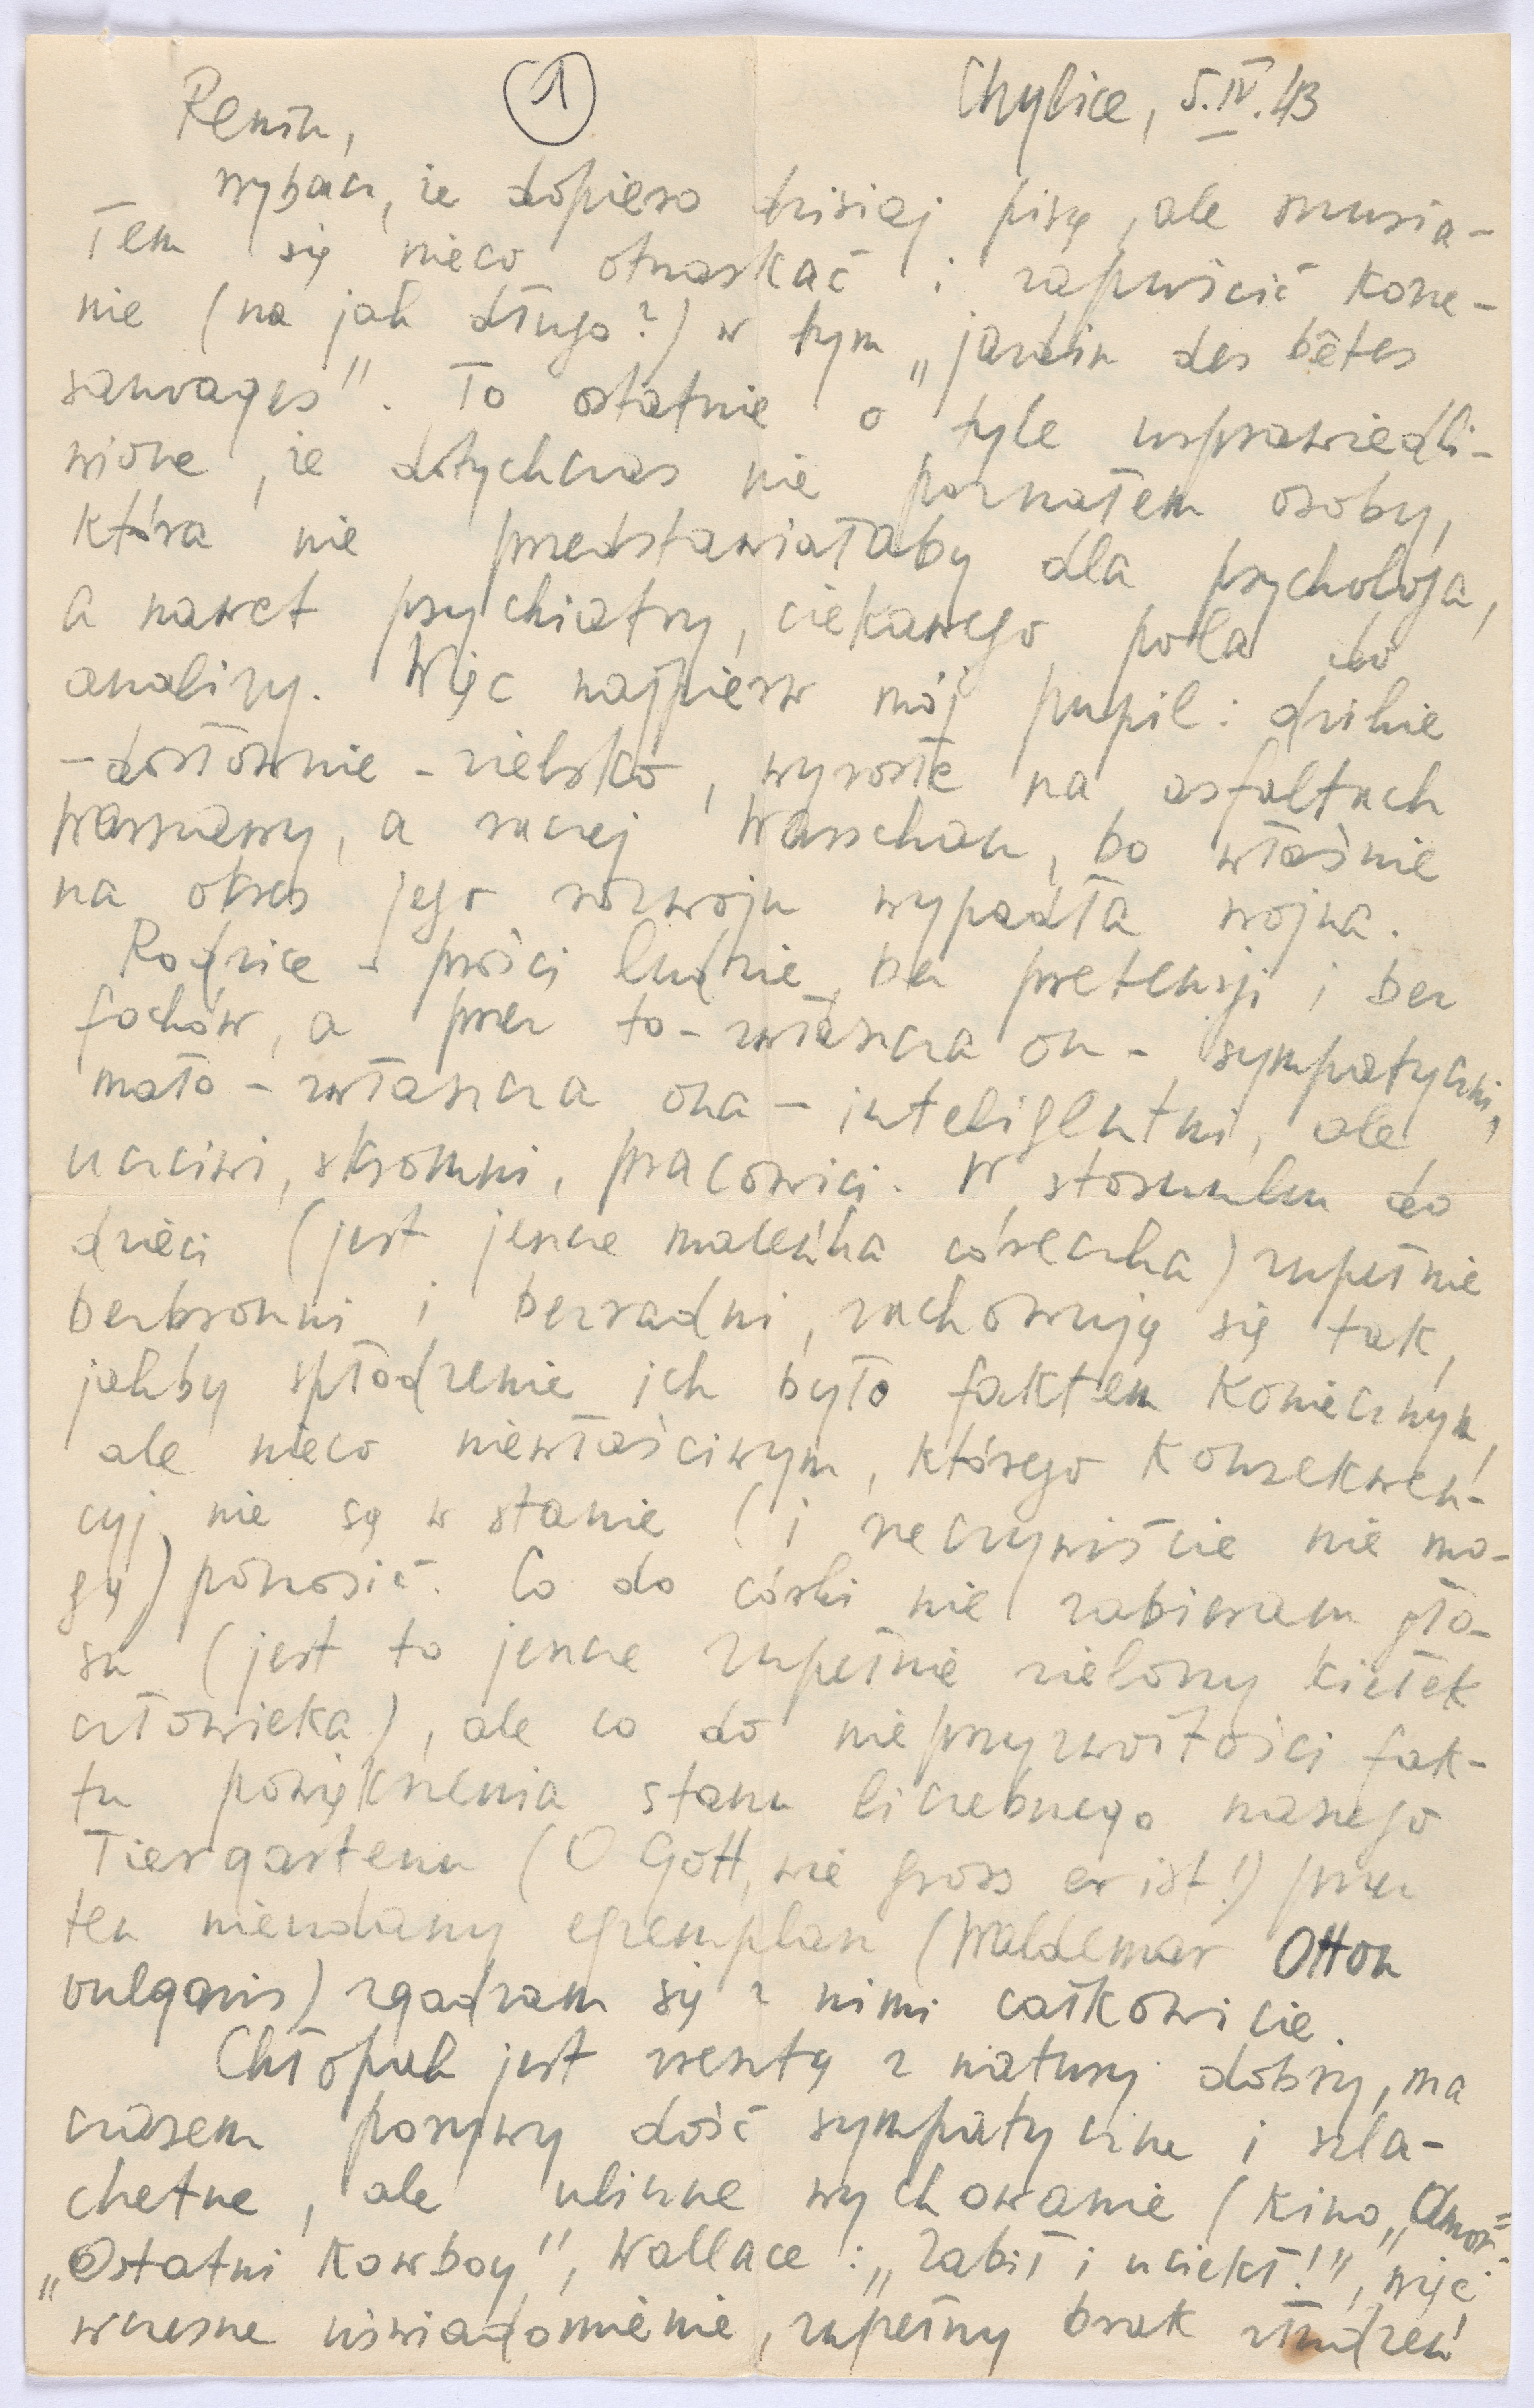 ①
Chylice, 5.IV.43
Reniu,
wybacz, że dopiero dzisiaj piszę, ale musia-
łem się nieco otrzaskać i zapuścić korze-
nie (na jak długo?) w tym „jardin des bêtes
sauvages". To ostatnie o tyle usprawiedli-
wione, że dotychczas nie poznałem osoby,
która nie przedstawiałaby dla psychologa,
a nawet psychiatry, ciekawego pola do
analizy. Więc najpierw mój pupil: dzikie
-dosłownie-zielsko, wyrosłe na asfaltach
Warszawy, a raczej Warschau, bo właśnie
na okres jego rozwoju wypadła wojna.
Rodzice - prości ludzie, bez pretensji i bez
fochów, a przez to - zwłaszcza on - sympatyczni,
mało - zwłaszcza ona - inteligentni, ale
uczciwi, skromni, pracowici. W stosunku do
dzieci (jest jeszcze maleńka córeczka) zupełnie
bezbronni i bezradni, zachowują się tak,
jakby spłodzenie ich było faktem koniecznym,
ale nieco niewłaściwym, którego konsekwen-
cyj nie są w stanie (i rzeczywiście nie mo-
gą) ponosić. Co do córki nie zabieram gło-
su (jest to jeszcze zupełnie zielony kiełek
człowieka), ale co do nieprzyzwoitości fak-
tu powiększenia stanu liczebnego naszego
Tiergartenu (O Gott, wie gross er ist!) przez
ten nieudany egzemplarz (Waldemar Otton
vulgaris) zgadzam się z nimi całkowicie.
Chłopak jest zresztą z natury dobry, ma
czasem porywy dość sympatyczne i szla-
chetne, ale uliczne wychowanie (kino „Amor":
„Ostatni Kowboy", Wallace: „Zabił i uciekł!", więc
wczesne uświadomienie, zupełny brak złudzeń